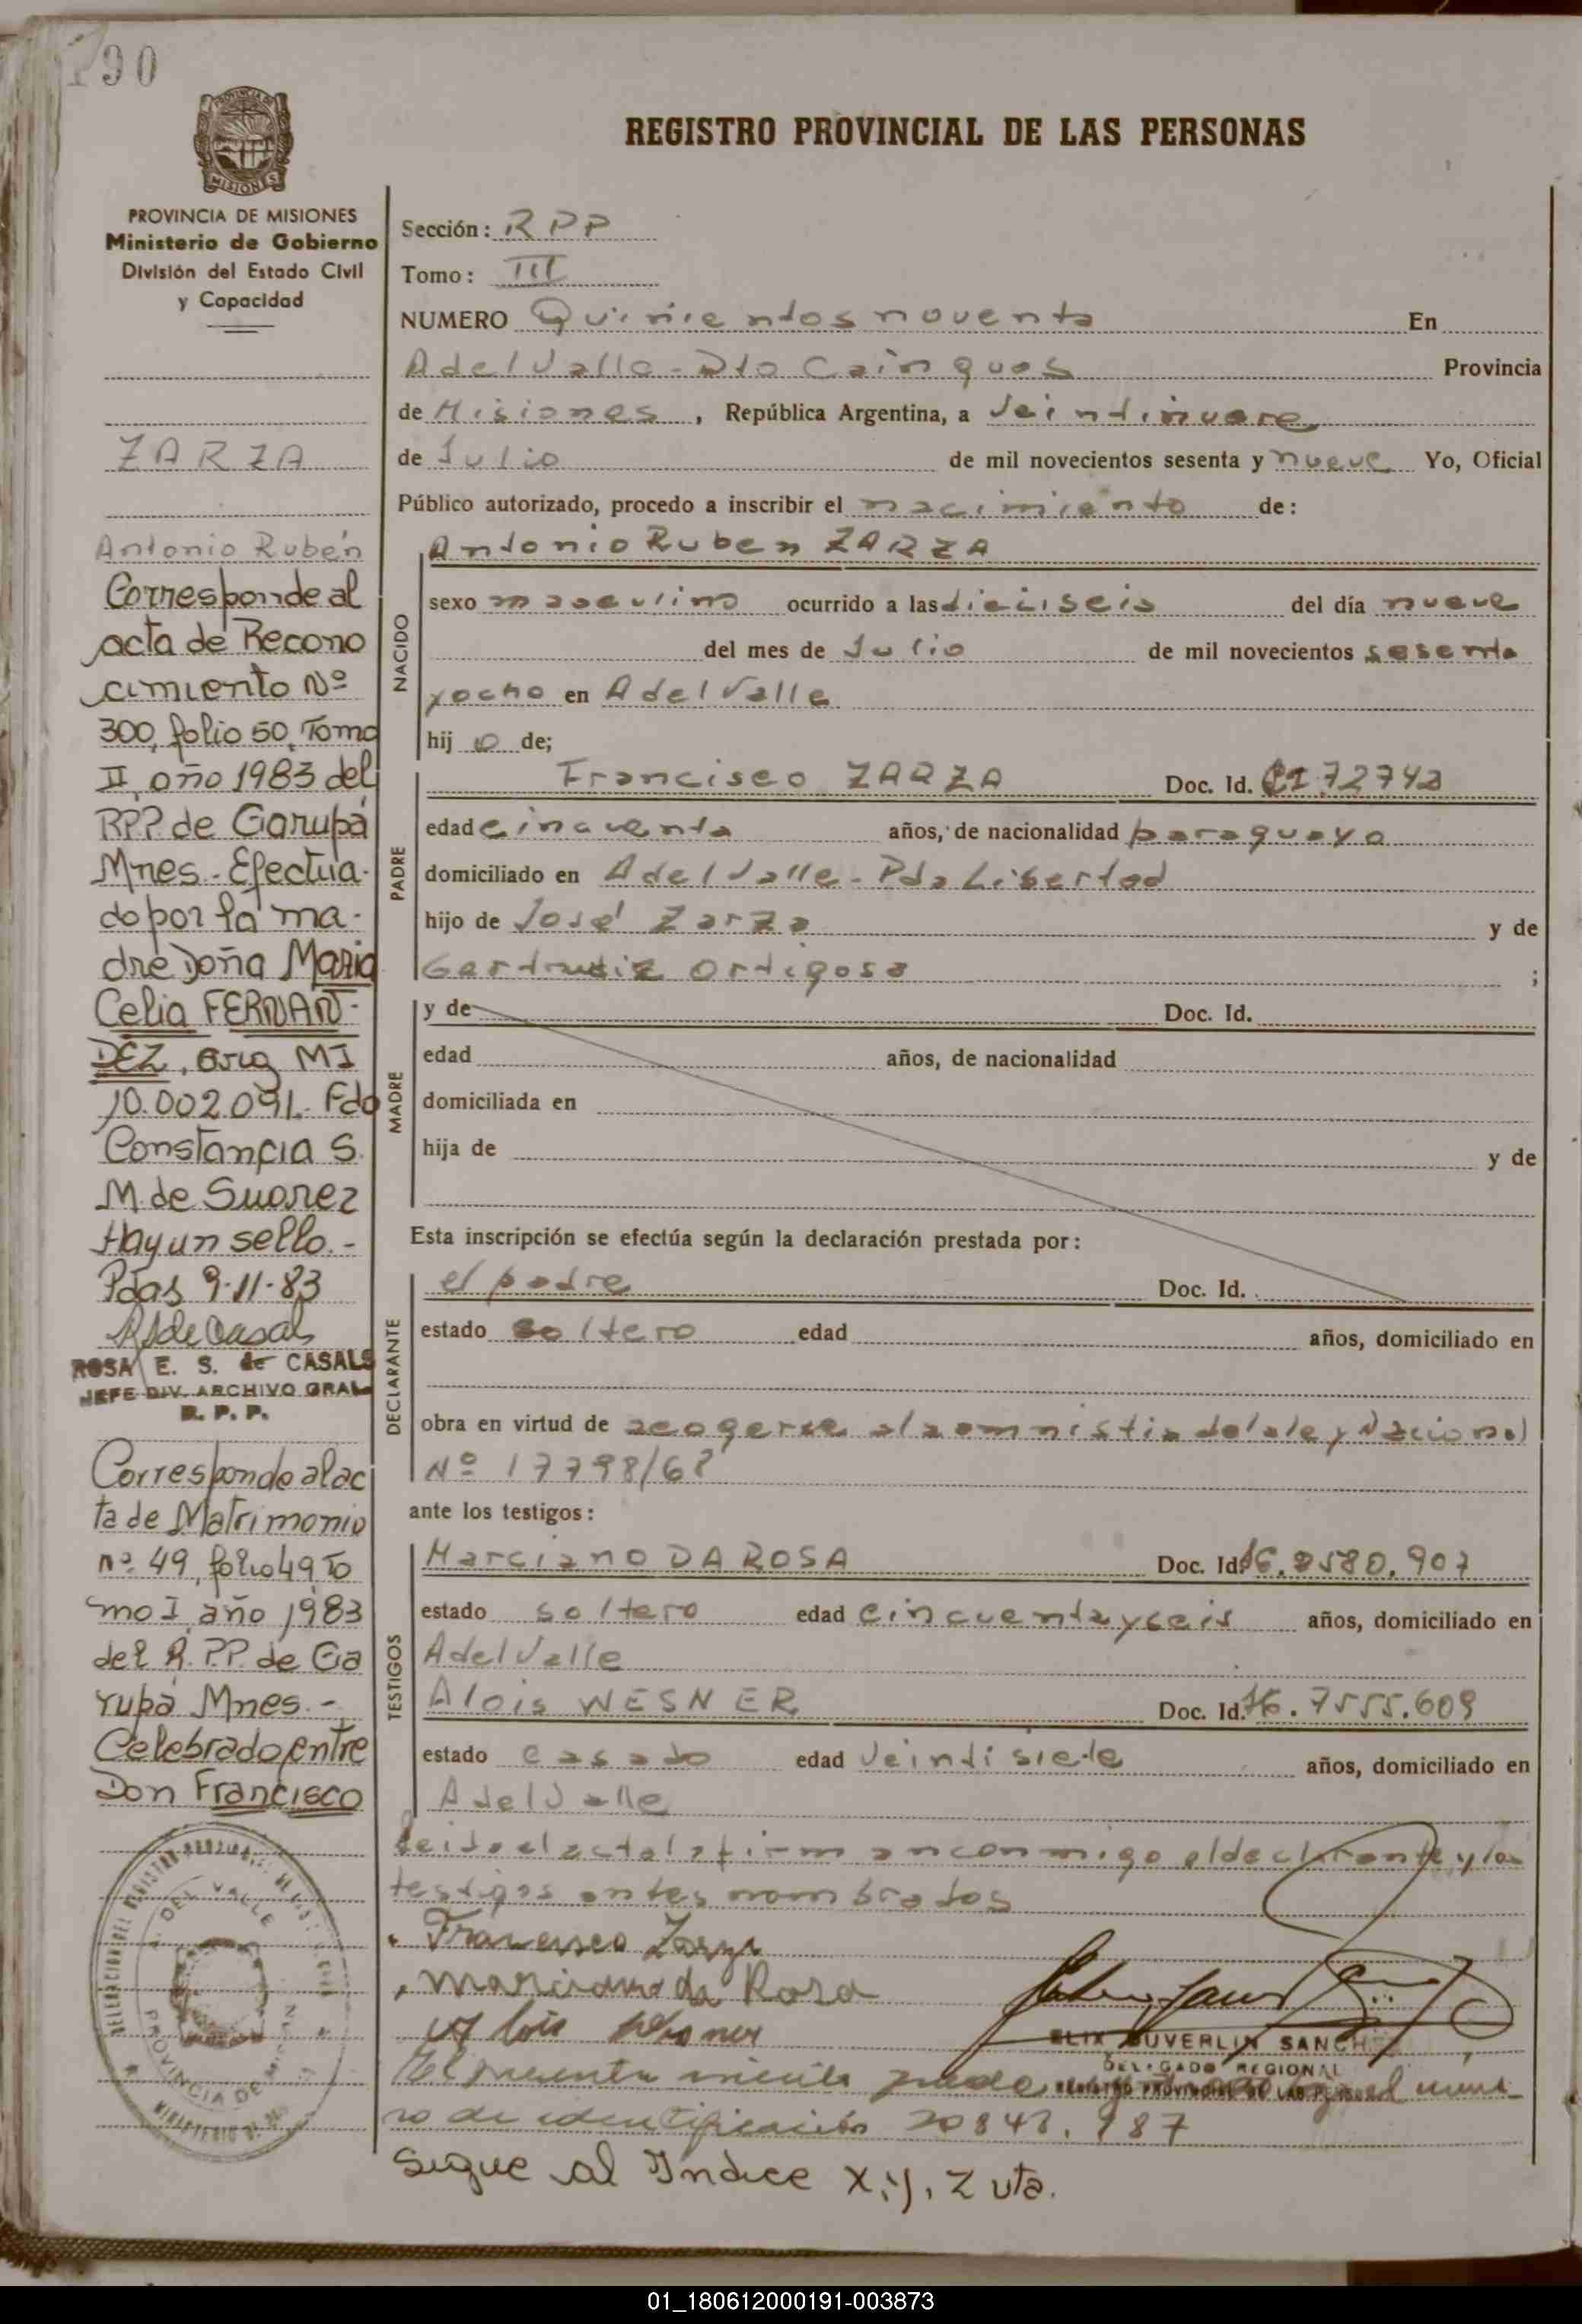 190
REGISTRO PROVINCIAL DE LAS PERSONAS
PROVINCIA DE
MISIONES
PROVINCIA DE MISIONES
Ministerio de Gobierno
División del Estado Civil
y Capacidad
ZARZA
Antonio Rubén
Corresponde al
acta de Recono
cimiento Nº
300, folio 50, Tomo
II, año 1983 del
RPP de Garupá
Mnes. Efectua-
do por la ma-
dre Doña Maria
Celia FERNAN-
DEZ, arg MI
10.002.091. Fdo
Constancia S.
M. de Suarez
Hay un sello.-
Pdas 9-11-83
ROSA E. S. de CASALS
JEFE DIV. ARCHIVO GRAL
R. P. P.
Corresponde al ac
ta de Matrimonio
nº 49, folio 49 To
mo I año 1983
del R.P.P. de Ga
rupá Mnes.-
Celebrado entre
Don Francisco
Sección: RPP
Tomo: III
NUMERO Quinientos noventa En
A del Valle - Dto Cainguas Provincia
de Misiones, República Argentina, a Veintinueve
de Julio de mil novecientos sesenta y nueve Yo, Oficial
Público autorizado, procedo a inscribir el nacimiento de:
NACIDO
Antonio Ruben ZARZA
sexo masculino ocurrido a las dieciseis del día nueve
del mes de Julio de mil novecientos sesenta
y ocho en A del Valle
hij o de;
PADRE
Francisco ZARZA Doc. Id. CI 72742
edad cincuenta años, de nacionalidad paraguayo
domiciliado en A del Valle - Pda Libertad
hijo de José Zarza y de
Gertrudiz Ortigosa ;
MADRE
y de Doc. Id.
edad años, de nacionalidad
domiciliada en
hija de y de
Esta inscripción se efectúa según la declaración prestada por:
DECLARANTE
el padre Doc. Id.
estado soltero edad años, domiciliado en
obra en virtud de acogerse a la amnistia de la ley Nacional
Nº 17798/68
ante los testigos:
TESTIGOS
Marciano DA ROSA Doc. Id. 580.907
estado soltero edad cincuenta y seis años, domiciliado en
A del Valle
Alois WESNER Doc. Id. 7555.609
estado casado edad Veintisiete años, domiciliado en
A del Valle
Leida el acta la firman conmigo el declarante y los
testigos antes nombrados
Francisco Zarza
Marciano da Rosa
Alois Wesner
ELIX DUVERLIN SANCH
DELEGADO REGIONAL
REGISTRO PROVINCIAL DE LAS PERSONAS
A. DEL VALLE
PROVINCIA DE MISIONES
El presente nu-
ro de identificación 20843.987
Sigue al Indice X, Y, Z vta.
01_180612000191-003873